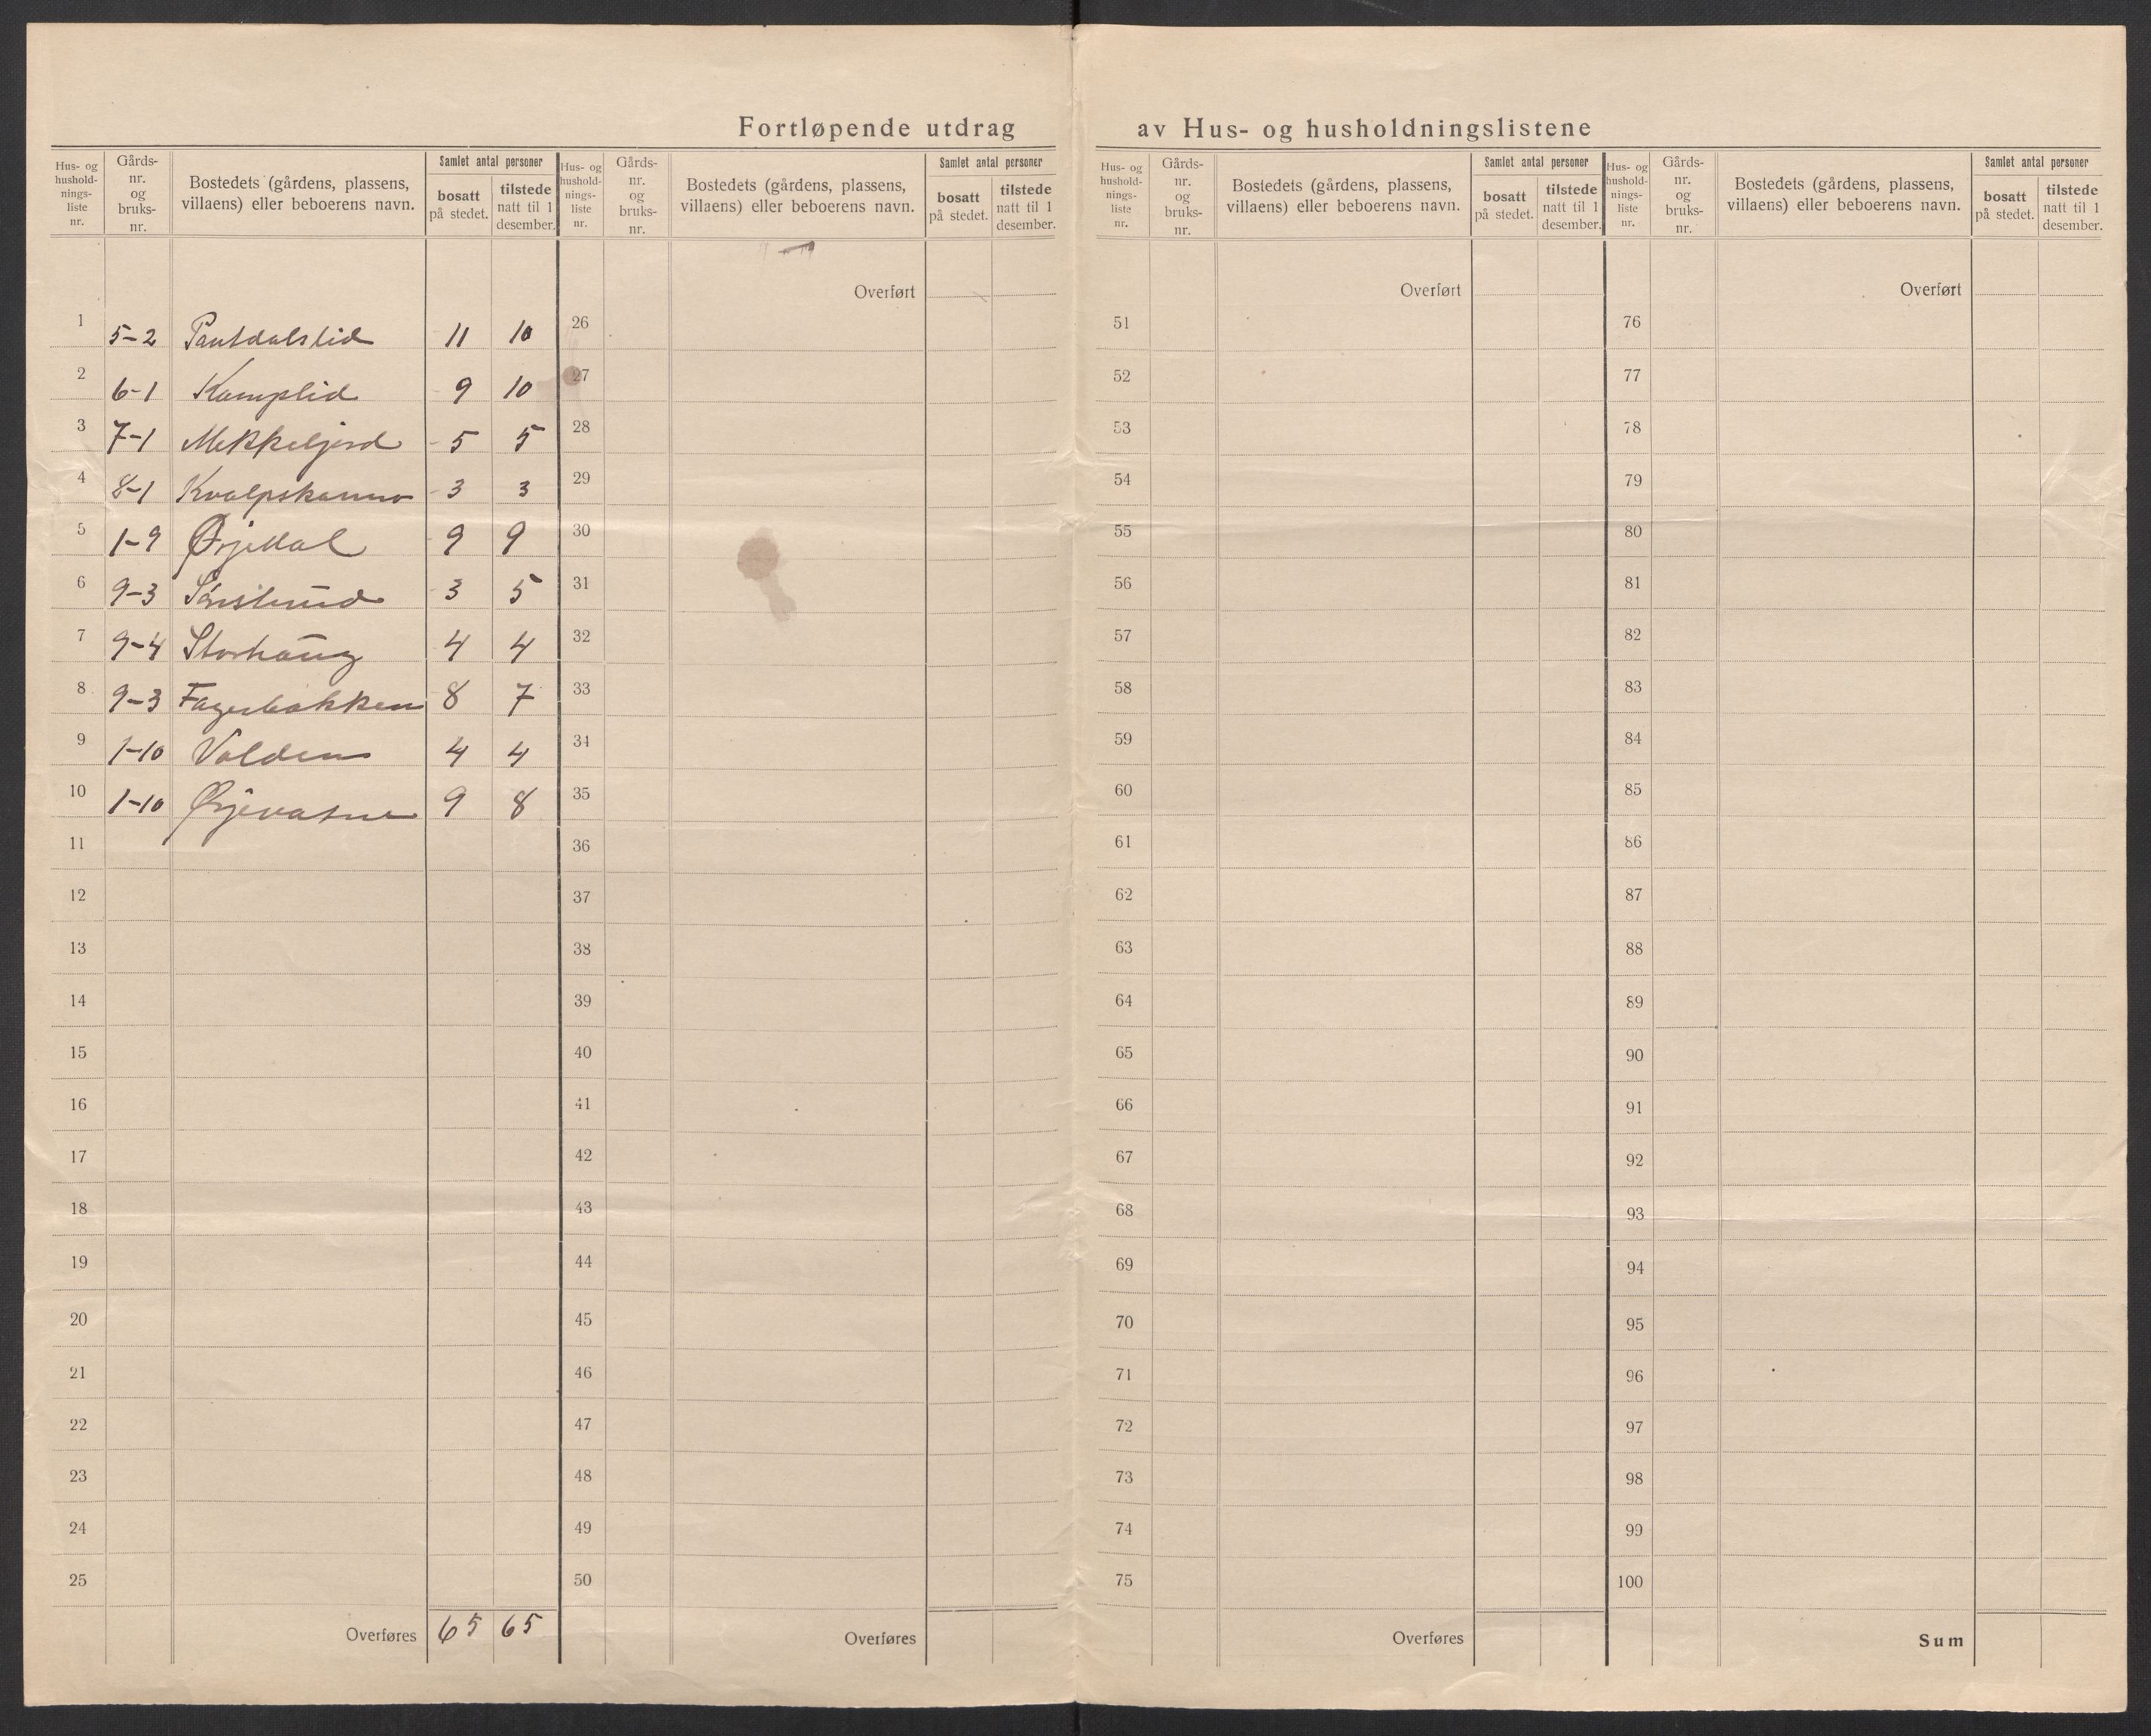 Fortløpende utdrag av Hus- og husholdningslistene
Hus- og hushold-nings-liste nr. | Gårds-nr. og bruks-nr. | Bostedets (gårdens, plassens, villaens) eller beboerens navn. | Samlet antal personer | bosatt på stedet. | tilstede natt til 1 desember.
Hus- og hushold-nings-liste nr. | Gårds-nr. og bruks-nr. | Bostedets (gårdens, plassens, villaens) eller beboerens navn. | Samlet antal personer | bosatt på stedet. | tilstede natt til 1 desember.
Hus- og hushold-nings-liste nr. | Gårds-nr. og bruks-nr. | Bostedets (gårdens, plassens, villaens) eller beboerens navn. | Samlet antal personer | bosatt på stedet. | tilstede natt til 1 desember.
Hus- og hushold-nings-liste nr. | Gårds-nr. og bruks-nr. | Bostedets (gårdens, plassens, villaens) eller beboerens navn. | Samlet antal personer | bosatt på stedet. | tilstede natt til 1 desember.
Overført Overført Overført
1 5-2 Pantdalslid 11 10 26 51 76
2 6-1 Kamplid 9 10 27 52 77
3 7-1 Mekkeljord 5 5 28 53 78
4 8-1 3 3 29 54 79
5 1-9 Ørjedal 9 9 30 55 80
6 9-3 3 5 31 56 81
7 9-4 Storhaug 4 4 32 57 82
8 9-3 Fagerbakken 8 7 33 58 83
9 1-10 Volden 4 4 34 59 84
10 1-10 9 8 35 60 85
11 36 61 86
12 37 62 87
13 38 63 88
14 39 64 89
15 40 65 90
16 41 66 91
17 42 67 92
18 43 68 93
19 44 69 94
20 45 70 95
21 46 71 96
22 47 72 97
23 48 73 98
24 49 74 99
25 50 75 100
Overføres 65 65 Overføres Overføres Sum